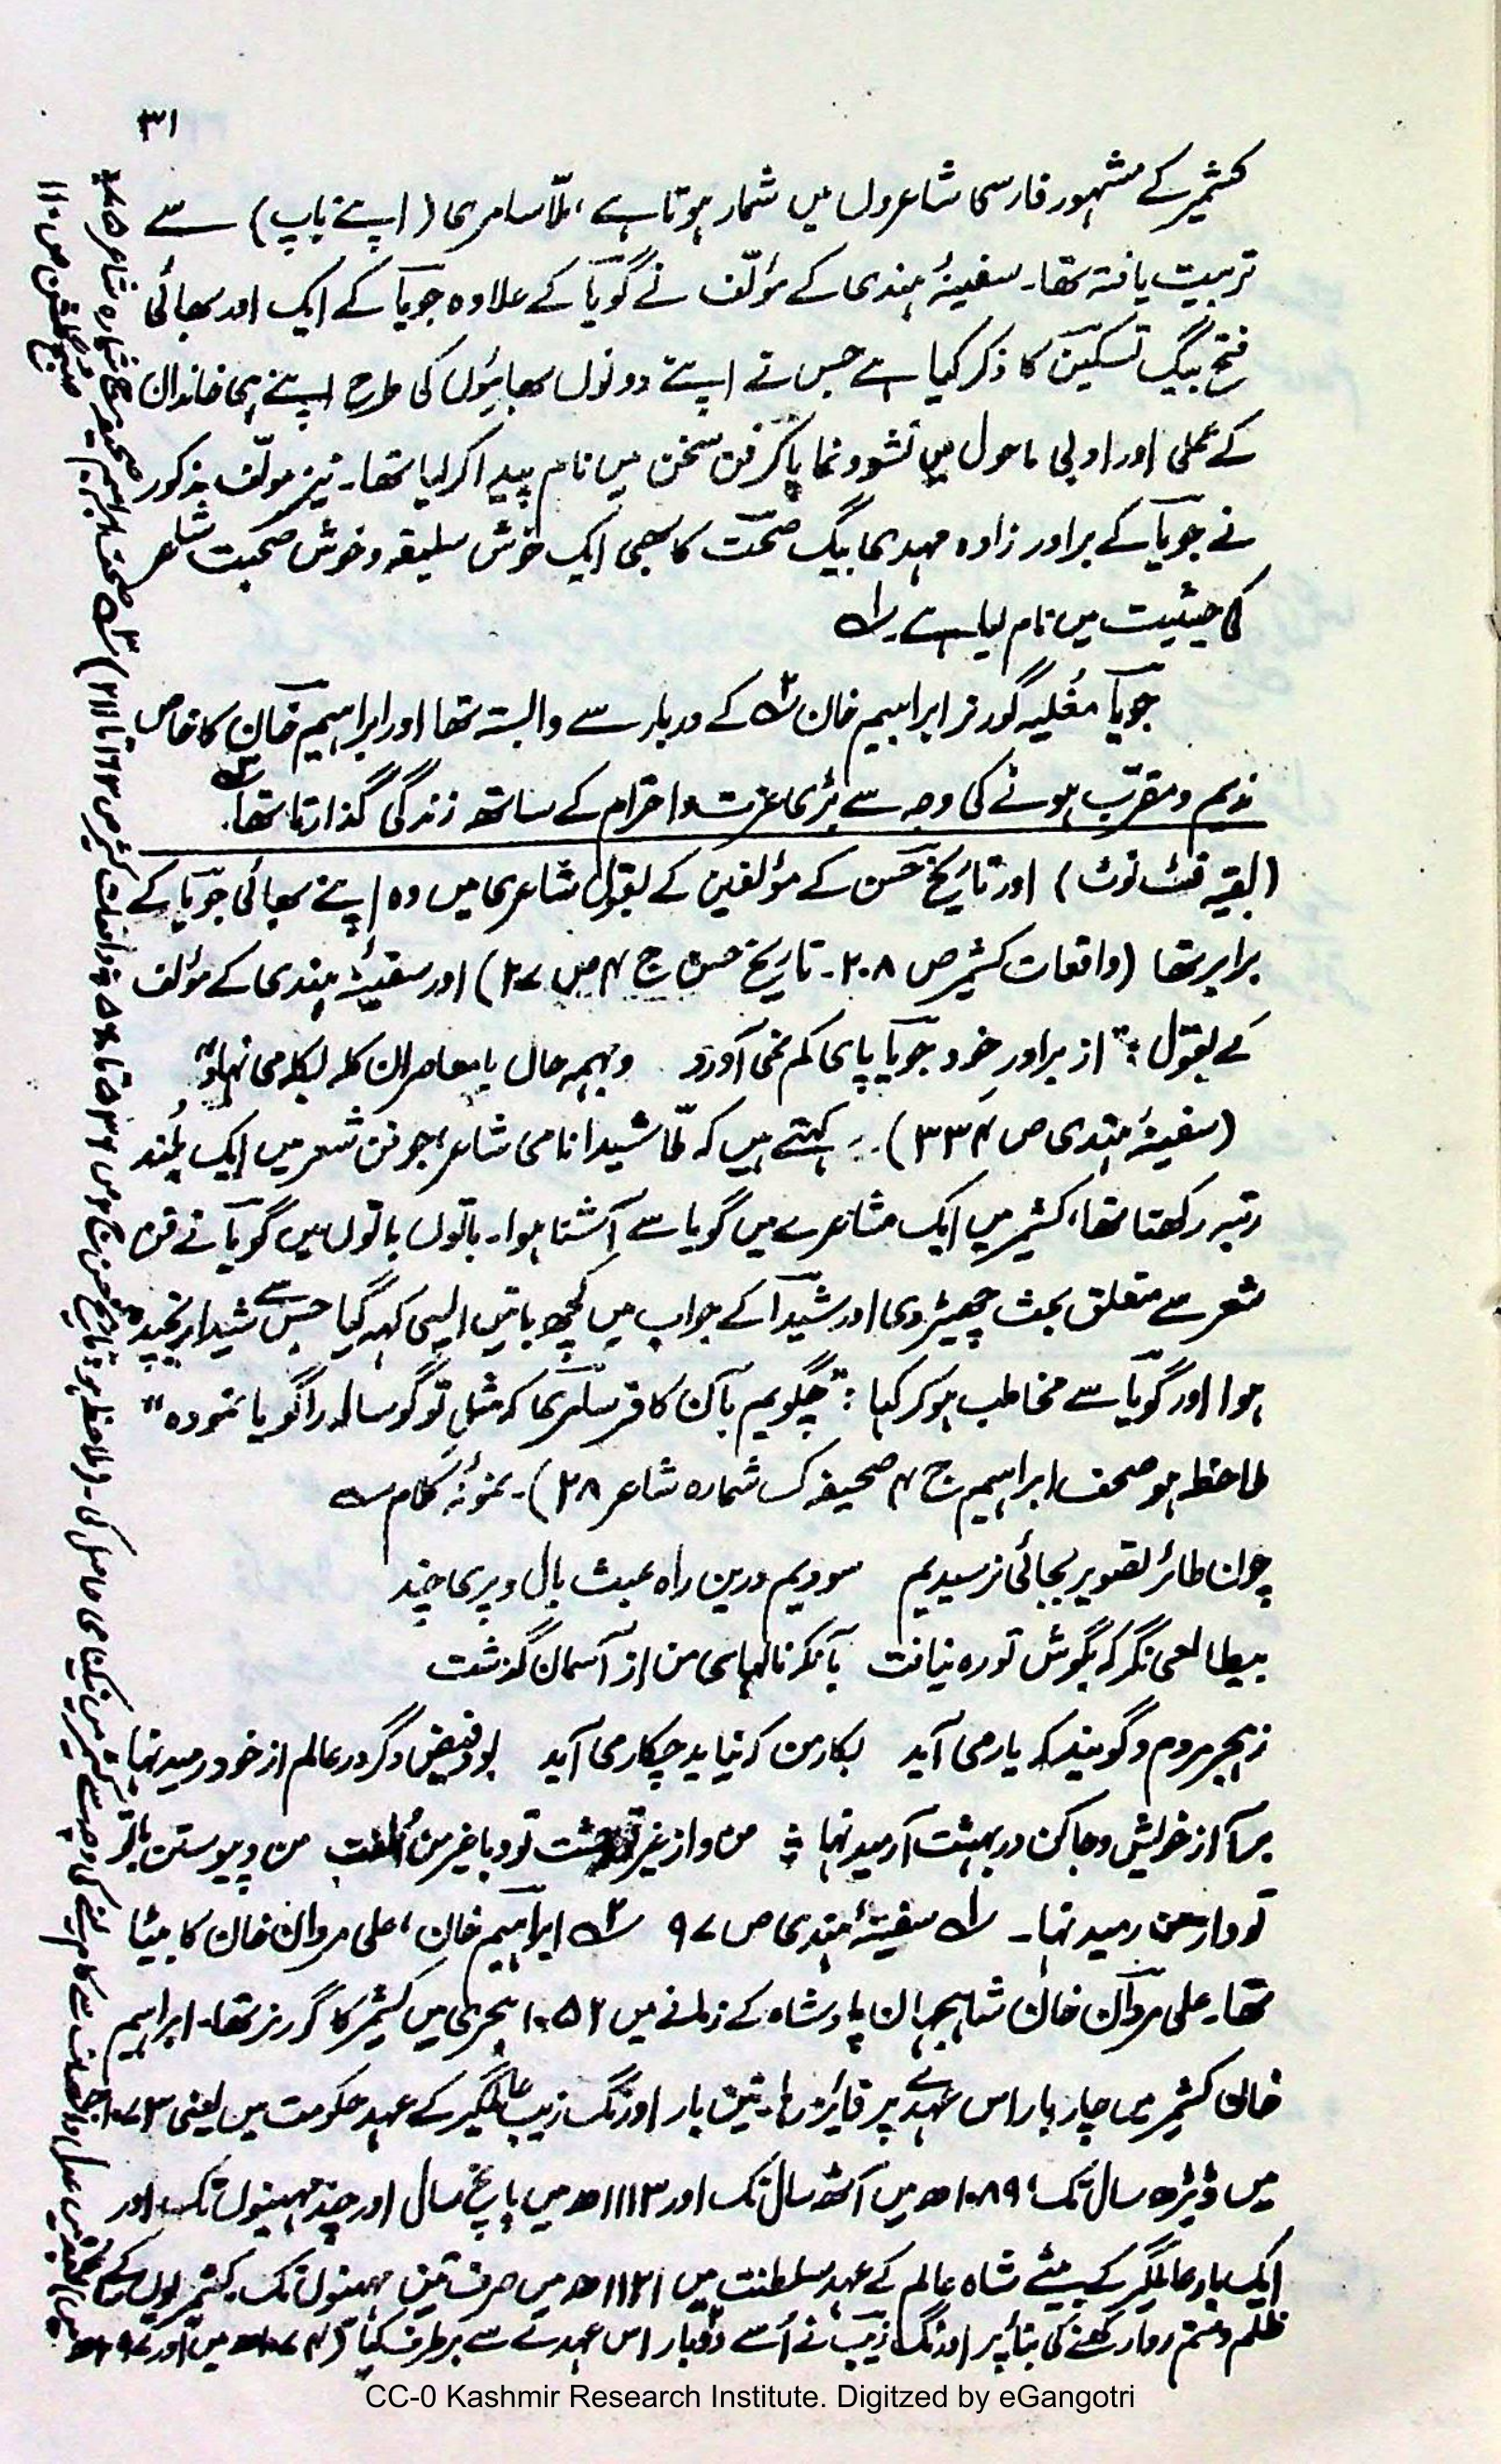 ۳۱
کشمیر کے مشہور فارسی شاعروں میں شمار ہوتا ہے، ملّا سامری (اپنے باپ) سے
تربیت یافتہ تھا۔ سفینۂ ہندی کے مؤلّف نے گویاؔ کے علاوہ جویاؔ کے ایک اور بھائی
فتح بیگ تسکینؔ کا ذکر کیا ہے جس نے اپنے دونوں بھائیوں کی طرح اپنے ہی خاندان
کے علمی اور ادبی ماحول میں نشوونما پاکر فن سخن میں نام پیدا کر لیا تھا۔ نیز مولّف مذکور
نے جویاؔ کے برادر زادہ مہدی بیگ صحّت کا بھی ایک خوش سلیقہ و خوش صحبت شاعر
کی حیثیت میں نام لیا ہے۔ ؎۱
جویاؔ مغلیہ گورنر ابراہیم خان ؎۲ کے دربار سے وابستہ تھا اور ابراہیم خان کا خاص
ندیم و مقرّب ہونے کی وجہ سے بڑی عزت و احترام کے ساتھ زندگی گذارتا تھا۔ ؎۳
(بقیہ فٹ نوٹ) اور تاریخ حسن کے مؤلفین کے بقول شاعری میں وہ اپنے بھائی جویاؔ کے
برابر تھا (واقعات کشمیر ص ۲۰۸۔ تاریخ حسن ج ۴ ص ۲۷) اور سفینۂ ہندی کے مؤلف
کے بقول: "از برادر خرد جویاؔ پای کم نمی آورد و بہمہ حال با معاصران کلہ بکلہ می نہاد"
(سفینۂ ہندی ص ۳۳۴)۔ کہتے ہیں کہ ملّا شیدا نامی شاعر، جو فن شعر میں ایک بلند
رتبہ رکھتا تھا، کشمیر میں ایک مشاعرے میں گویا سے آشنا ہوا۔ باتوں باتوں میں گویاؔ نے فن
شعر سے متعلق بحث چھیڑ دی اور شیداؔ کے جواب میں کچھ باتیں ایسی کہہ گیا جس سے شیدا رنجیدہ
ہوا اور گویاؔ سے مخاطب ہو کر کہا: "چگویم بآن کافر سامری کہ مثل تو گوسالہ را گویا نمودہ"
ملاحظہ ہو صحف ابراہیم ج ۴ صحیفہ ک شمارہ شاعر ۲۸)۔ نمونۂ کلام ؎
چون طائر تصویر بجائی نرسیدیم سودیم درین راہ عبث بال و پری چند
بیطالعی نگر کہ بگوش تو رہ نیافت بآنکہ نالہای من از آسمان گذشت
ز ہجر مردم و گویند کہ یار می آید بکار من کہ نیاید چکار می آید بود فیض دگر در عالم از خود رمیدنہا
برآ از خویش و جا کن در بہشت آرمیدنہا ؛ من و از غیر تو وحشت تو و با غیر من الفت من و پیوستن با تو
تو و از من رمیدنہا۔ ؎۱ سفینۂ ہندی ص ۹۷ ؎۲ ابراہیم خان، علی مردان خان کا بیٹا
تھا۔ علی مردان خان شاہجہان بادشاہ کے زمانے میں ۱۰۵۲ ہجری میں کشمیر کا گورنر تھا۔ ابراہیم
خان کشمیر میں چار بار اس عہدے پر فایز رہا۔ تین بار اورنگ زیب عالمگیر کے عہد حکومت میں یعنی ۱۰۷۳
میں ڈیڑھ سال تک، ۱۰۸۹ھ میں آٹھ سال تک اور ۱۱۱۳ھ میں پانچ سال اور چند مہینوں تک اور
ایک بار عالمگیر کے بیٹے شاہ عالم کے عہد سلطنت میں ۱۱۲۱ھ میں صرف تین مہینوں تک۔ کشمیریوں کے
ظلم و ستم روا رکھنے کی بنا پر اورنگ زیب نے اُسے دوبار اس عہدے سے برطرف کیا (۱۰۷۴ھ میں اور ۱۰۹۷ھ
CC-0 Kashmir Research Institute. Digitzed by eGangotri